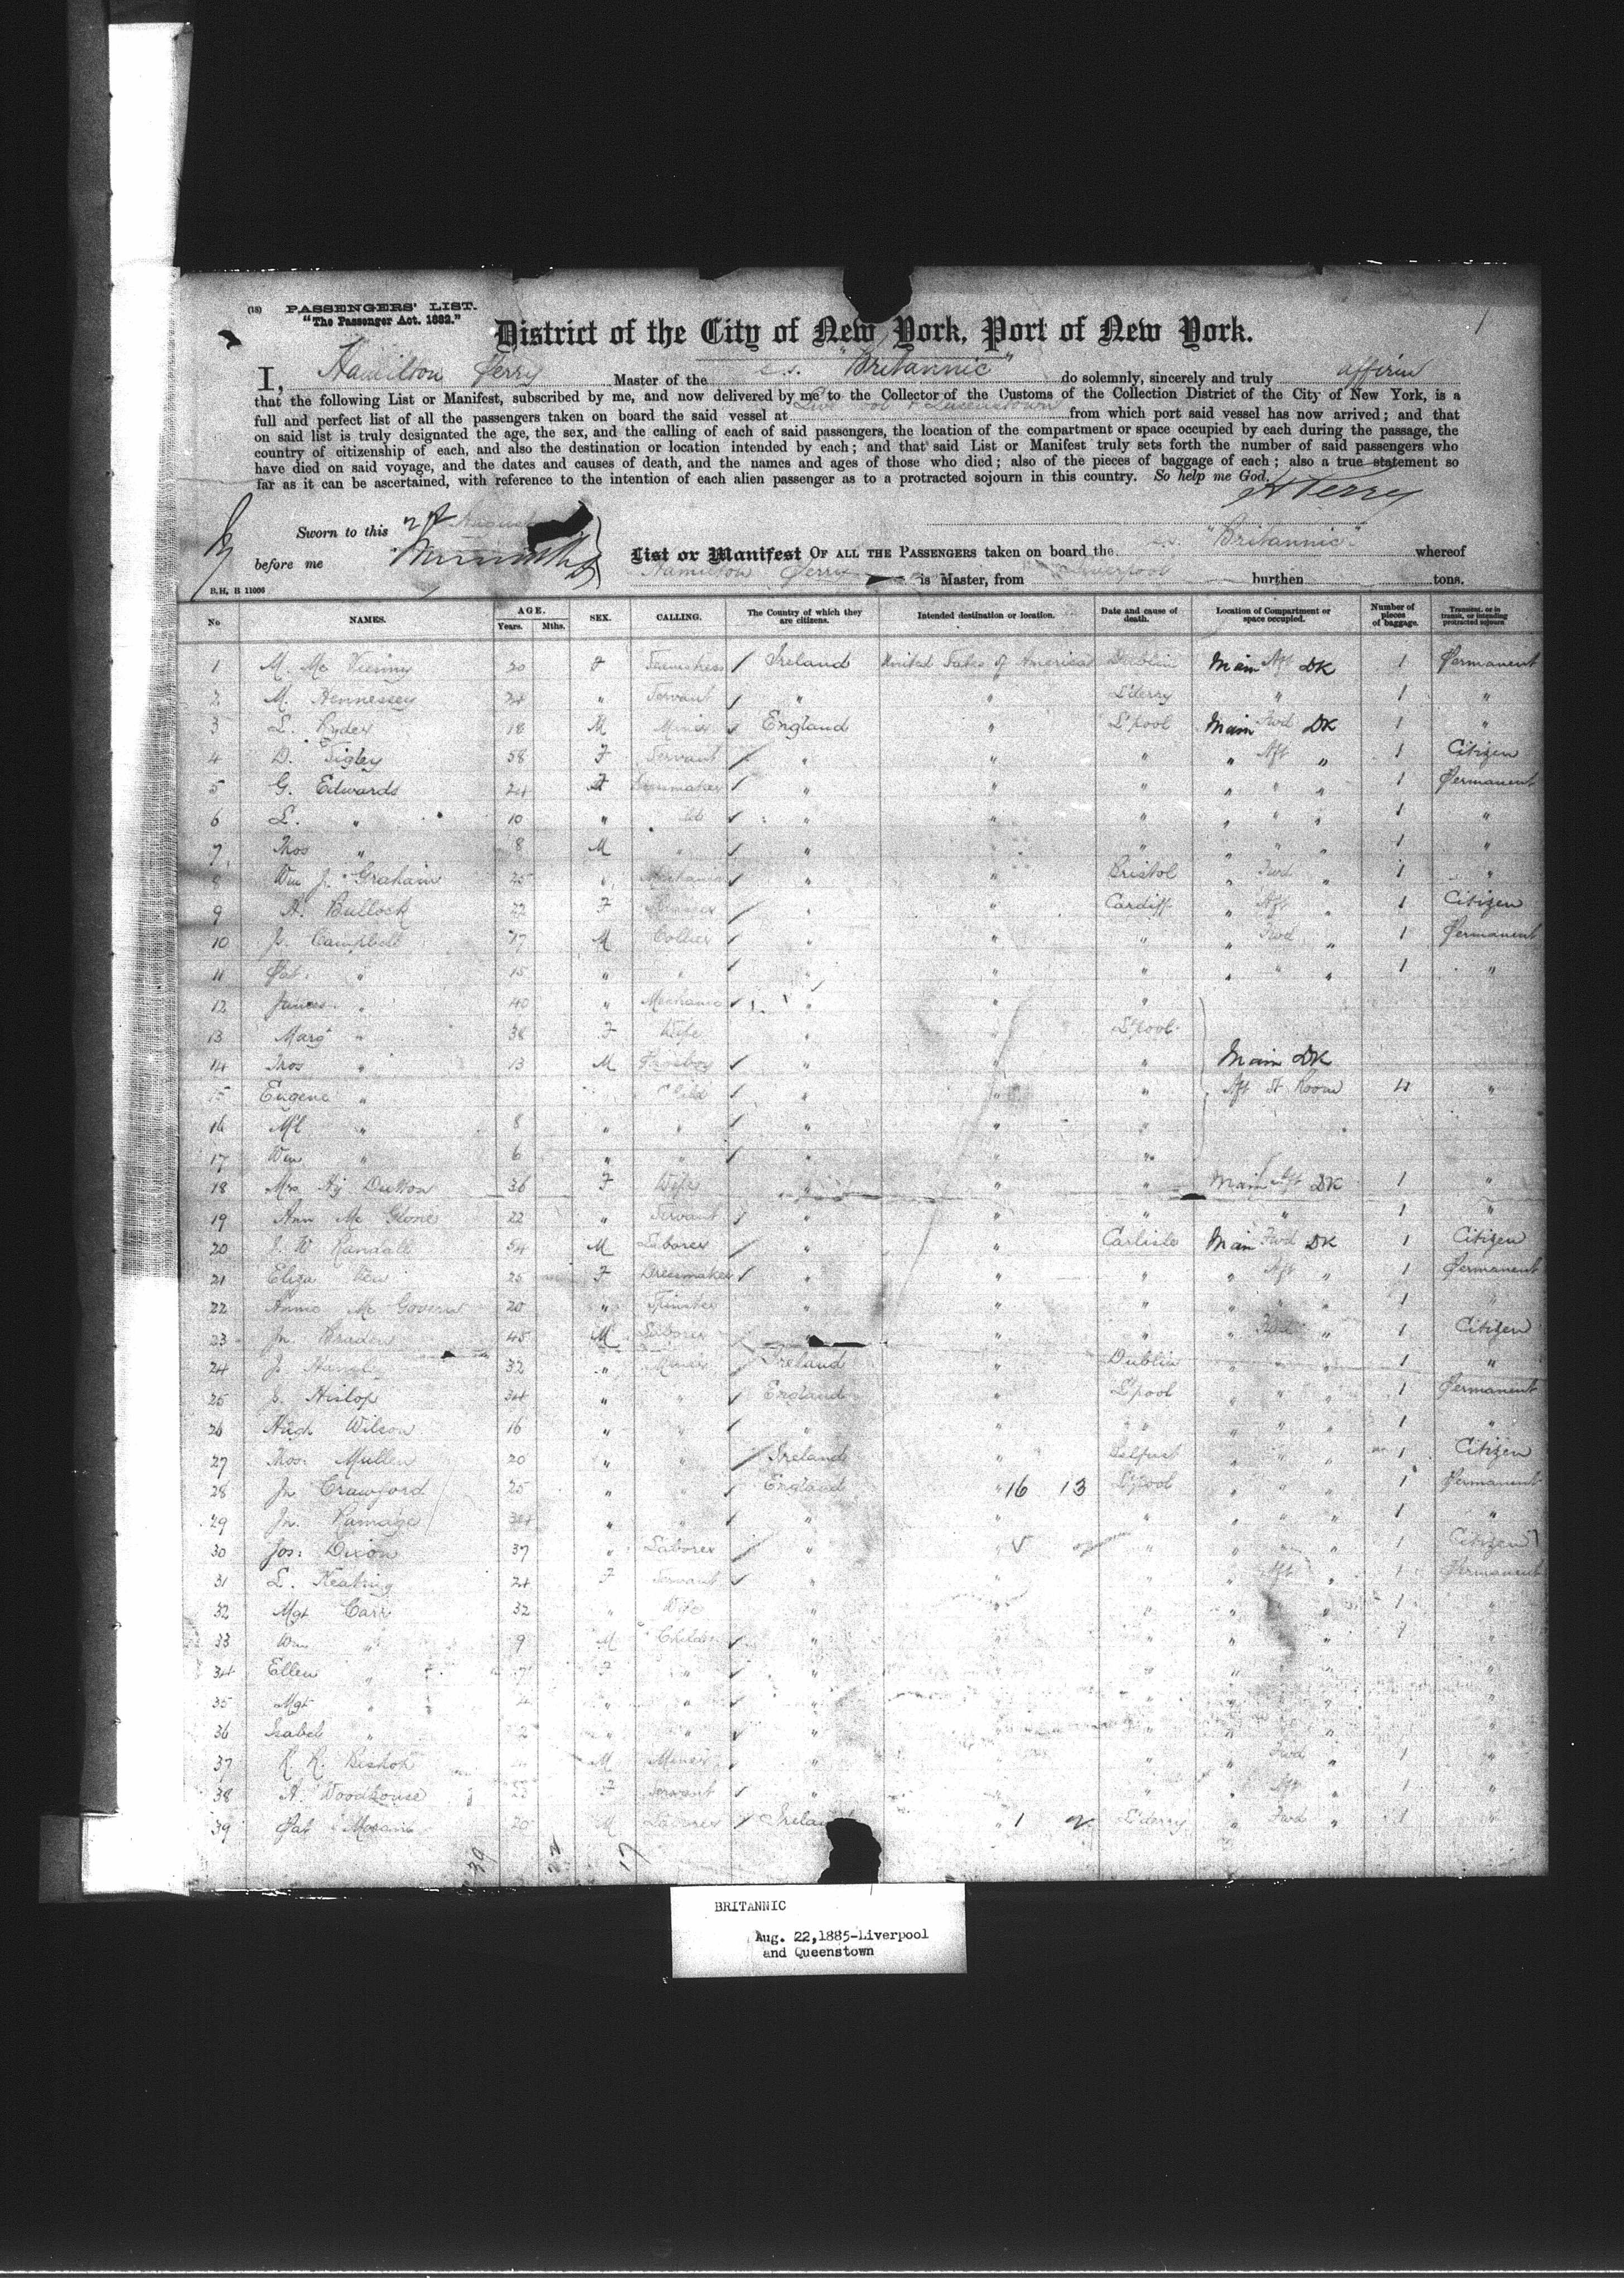 (18) PASSENGERS' LIST.
"The Passenger Act. 1882."
1
District of the City of New York, Port of New York.
I, Hamilton Perry Master of the s.s. "Britannic" do solemnly, sincerely and truly affirm
that the following List or Manifest, subscribed by me, and now delivered by me to the Collector of the Customs of the Collection District of the City of New York, is a
full and perfect list of all the passengers taken on board the said vessel at Queenstown from which port said vessel has now arrived; and that
on said list is truly designated the age, the sex, and the calling of each of said passengers, the location of the compartment or space occupied by each during the passage, the
country of citizenship of each, and also the destination or location intended by each; and that said List or Manifest truly sets forth the number of said passengers who
have died on said voyage, and the dates and causes of death, and the names and ages of those who died; also of the pieces of baggage of each; also a true statement so
far as it can be ascertained, with reference to the intention of each alien passenger as to a protracted sojourn in this country. So help me God.
H Perry
Sworn to this August
before me
List or Manifest OF ALL THE PASSENGERS taken on board the s.s. "Britannic" whereof
Hamilton Perry is Master, from Liverpool burthen tons.
B.H. B 11006
No NAMES. AGE. Years. Mths. SEX. CALLING. The Country of which they are citizens. Intended destination or location. Date and cause of death. Location of Compartment or space occupied. Number of pieces of baggage. Transient, or in transit, or intending protracted sojourn
1 M. Mc 20 F Seamstress Ireland United States of America Dublin Main Aft DK 1 Permanent
2 M. Hennessey 24 " Servant " " L'derry " 1 "
3 L. Ryder 18 M Miner England " L'pool Main Fwd DK 1 "
4 D. Tigley 58 F Servant " " " " Aft " 1 Citizen
5 G. Edwards 24 F " " " " " " 1 Permanent
6 L. " 10 " " " " " " " 1 "
7 Thos " 8 M " " " " " " " 1 "
8 Wm J. Graham 25 " Mechanic " " Bristol " Fwd " 1 "
9 A. Bullock 22 F " " Cardiff " Aft " 1 Citizen
10 J. Campbell 17 M Collier " " " " Fwd " 1 Permanent
11 Pat. " 15 " " " " " " " " 1 "
12 James " 40 " Mechanic " " "
13 Marg " 38 F Wife " " L'pool
14 Thos " 13 M " " " Main DK
15 Eugene " Child " " " Aft St Room 4 "
16 Ml " 8 " " " " "
17 Wm " 6 " " " " "
18 Mrs Hy Dutton 36 F Wife " " " Main Aft DK 1 "
19 Ann Mc Glone 22 " Servant " " " " 1 "
20 J. W Randall 54 M Laborer " " Carlisle Main Fwd DK 1 Citizen
21 Eliza 25 F Dressmaker " " " " Aft " 1 Permanent
22 Annie Mc Govern 20 " " " " " " " 1 "
23 Jn. 45 M Laborer " " " " Fwd " 1 Citizen
24 J. 32 " Miner Ireland " Dublin " " " 1 "
25 J. Hislop 34 " " England " L'pool " " " 1 Permanent
26 Hugh Wilson 16 " " " " " " " " 1 "
27 Thos. Mullen 20 " " Ireland " Belfast " " " 1 Citizen
28 Jn. Crawford 25 " " England " 16 13 L'pool " " " 1 Permanent
29 Jn. Ramage 34 " " " " " " " " 1 "
30 Jos: Dixon 37 " Laborer " " " " " " 1 Citizen
31 L. Keating 24 F Servant " " " " Aft " 1 Permanent
32 Mgt Carr 32 " Wife " " " " " 1 "
33 Wm " 9 M Child " " " " " 1 "
34 Ellen " 7 F " " " " " " "
35 Mgt " 4 " " " " " " " "
36 Isabel " 2 " " " " " " " "
37 R. R. Bishop M Miner " " " " Fwd " 1 "
38 A. Woodhouse 23 F Servant " " " " Aft " 1 "
39 Pat 20 M Laborer Ireland " 1 L'derry " Fwd " 1 "
39 22 17
BRITANNIC
Aug. 22,1885-Liverpool
and Queenstown